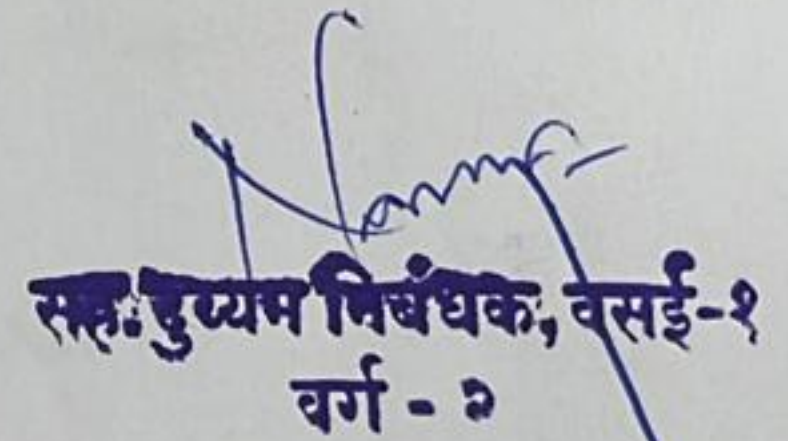 सह. दुय्यम निबंधक, वसई-१
वर्ग - २